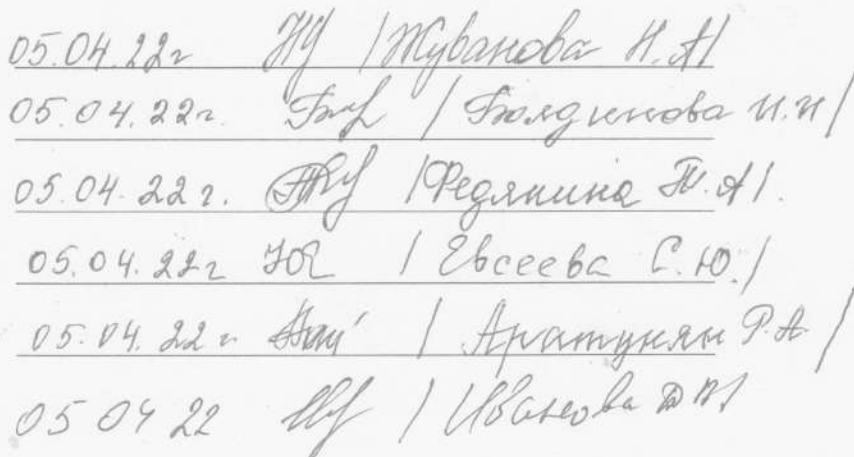 05.04.22г /Жуванова Н.А/
05.04.22г. /Болдинова И.И/
05.04.22г. /Федякина Т.А/.
05.04.22г / Евсеева С.Ю./
05.04.22г / Аратунян Р.А /
05 04 22 / Иванова /